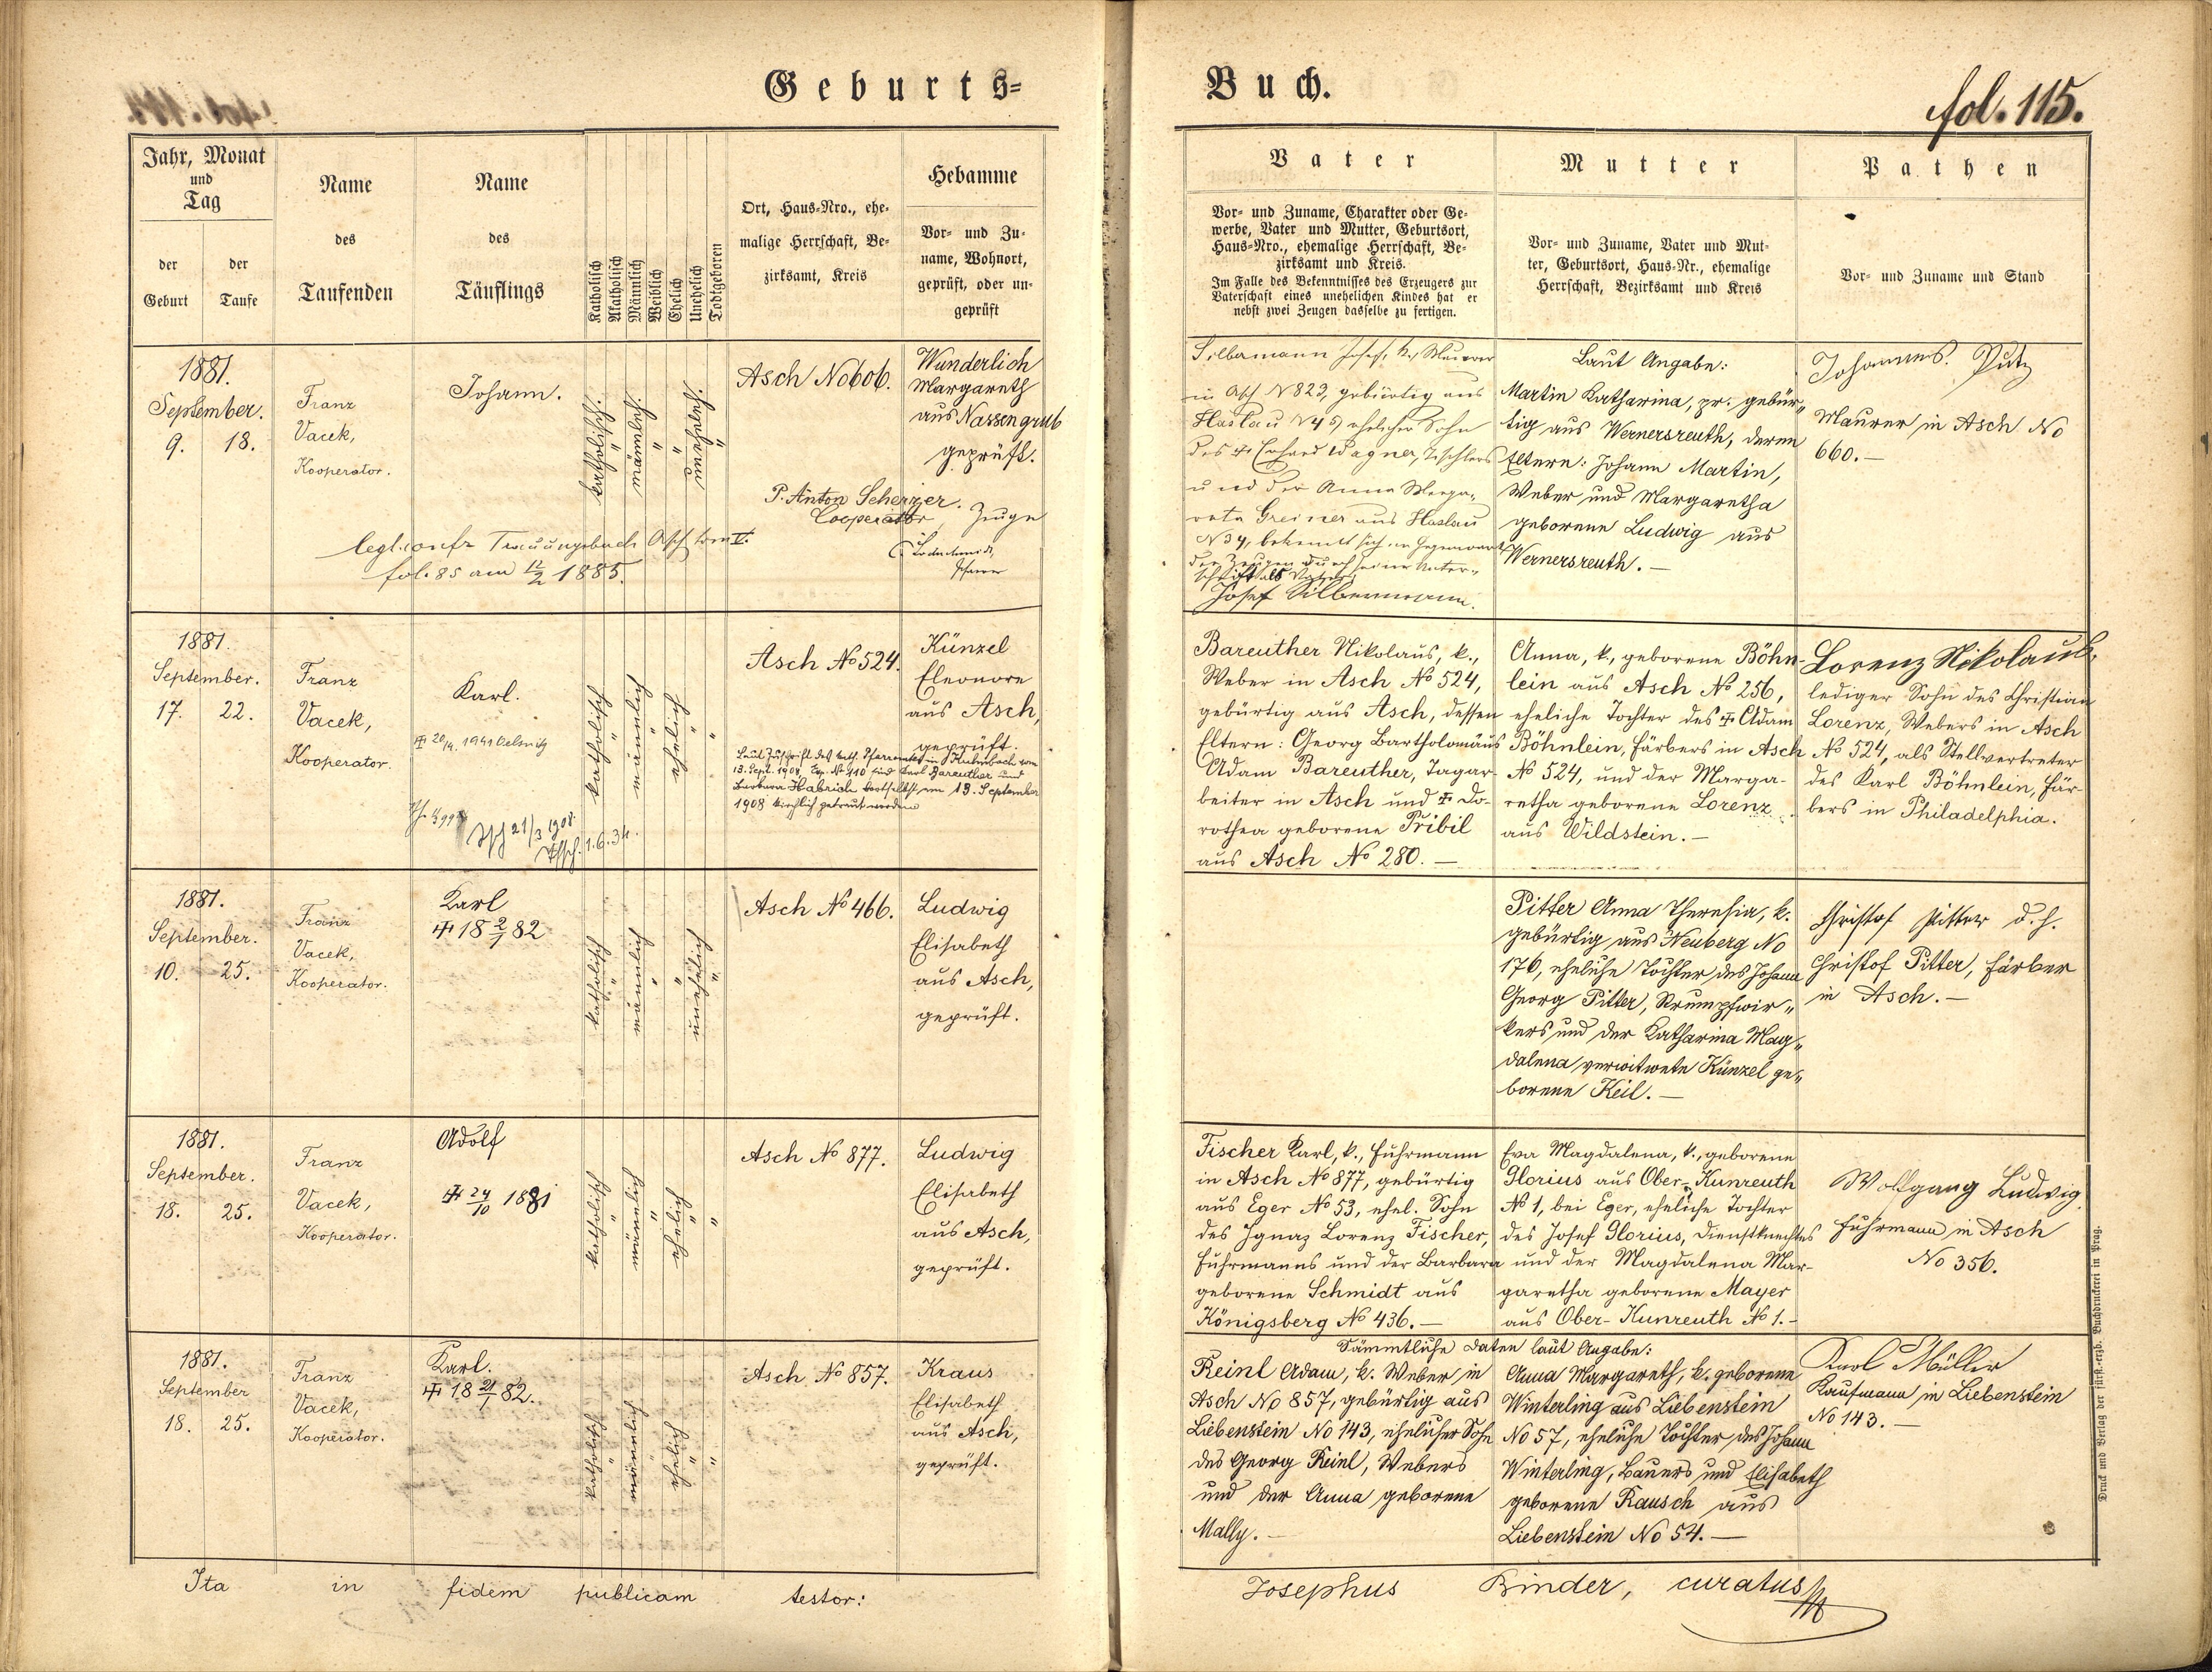 Geburts=
Buch.
fol. 115.
Jahr, Monat
und
Tag
der
Geburt
der
Taufe
Name
des
Taufenden
Name
des
Täuflings
Katholisch
Akatholisch
Männlich
Weiblich
Ehelich
Unehelich
Todtgeboren
Ort, Haus-Nro., ehe-
malige Herrschaft, Be-
zirksamt, Kreis
Hebamme
Vor- und Zu-
name, Wohnort,
geprüft, oder un-
geprüft
Vater
Vor- und Zuname, Charakter oder Ge-
werbe, Vater und Mutter, Geburtsort,
Haus-Nro., ehemalige Herrschaft, Be-
zirksamt und Kreis.
Im Falle des Bekenntnisses des Erzeugers zur
Vaterschaft eines unehelichen Kindes hat er
nebst zwei Zeugen dasselbe zu fertigen.
Mutter
Vor- und Zuname, Vater und Mut-
ter, Geburtsort, Haus-Nr., ehemalige
Herrschaft, Bezirksamt und Kreis
Pathen
Vor- und Zuname und Stand
1881.
September.
9. 18.
Franz
Vacek,
Kooperator.
Johann.
katholisch.
"
männlich.
"
"
unehelich.
"
Asch No 606.
Wunderlich
Margareth
aus Nassengrub
geprüft.
P. Anton Scherzer.
Cooperator, Zeuge
legt. confr Trauungsbuch Asch tom V.
fol. 85 am 12/2 1885.
Pfarrer
Silbermann Josef, k., Maurer
in Asch N 823, gebürtig aus
Haslau N 45, ehelicher Sohn
des + Erhard Wagner, Tischlers
und der Anna Marga-
reta Greiner aus Haslau
N 34, bekennt sich in Gegenwart
der Zeugen durch seine Unter-
schrift als Vater.
Josef Silbermann.
Laut Angabe:
Martin Katharina, pr. gebür-
tig aus Wernersreuth, deren
Eltern: Johann Martin,
Weber und Margaretha
geborene Ludwig aus
Wernersreuth. —
Johannes. Putz
Maurer in Asch No
660. —
1881.
September.
17. 22.
Franz
Vacek,
Kooperator.
Karl.
+ 20/4. 1941 Oelsnitz
21/3 1908.
1.6.34.
katholisch
"
männlich
"
ehelich
"
Asch No 524.
Künzel
Eleonore
aus Asch,
geprüft.
Laut Zuschrift des kath. Pfarramtes in Kulmbach vom
13. Sept. 1908 Exp. No 110 sind Karl Bareuther und
Barbara Habrich dortselbst am 13. September
1908 kirchlich getraut worden
Bareuther Nikolaus, k.,
Weber in Asch No 524,
gebürtig aus Asch, dessen
Eltern: Georg Bartholomäus
Adam Bareuther, Tagar-
beiter in Asch und + Do-
rothea geborene Pribil
aus Asch No 280. —
Anna, k., geborene Böhn-
lein aus Asch No 256,
eheliche Tochter des + Adam
Böhnlein, Färbers in Asch
No 524, und der Marga-
retha geborene Lorenz
aus Wildstein. —
Lorenz Nikolaus,
lediger Sohn des Christian
Lorenz, Webers in Asch
No 524, als Stellvertreter
des Karl Böhnlein, Fär-
bers in Philadelphia.
1881.
September.
10. 25.
Franz
Vacek,
Kooperator.
Karl
+ 18 2/1 82
katholisch
"
männlich
"
"
unehelich
"
Asch No 466.
Ludwig
Elisabeth
aus Asch,
geprüft.
Pitter Anna Theresia, k.
gebürtig aus Neuberg No
176, eheliche Tochter des Johann
Georg Pitter, Strumpfwir-
kers und der Katharina Mag-
dalena verwitwete Künzel ge-
borene Keil. —
Christof Pitter d. h.
Christof Pitter, Färber
in Asch. —
1881.
September.
18. 25.
Franz
Vacek,
Kooperator.
Adolf
+ 24/10 1881
katholisch
"
männlich
"
ehelich
"
"
Asch No 877.
Ludwig
Elisabeth
aus Asch,
geprüft.
Fischer Karl, k., Fuhrmann
in Asch No 877, gebürtig
aus Eger No 53, ehel. Sohn
des Ignaz Lorenz Fischer,
Fuhrmanns und der Barbara
geborene Schmidt aus
Königsberg No 436. —
Eva Magdalena, k., geborene
Glorius aus Ober-Kunreuth
No 1, bei Eger, eheliche Tochter
des Josef Glorius, Dienstknechtes
und der Magdalena Mar-
garetha geborene Mayer
aus Ober-Kunreuth No 1. -
Wolfgang Ludwig
Fuhrmann in Asch
No 356.
1881.
September
18. 25.
Franz
Vacek,
Kooperator.
Karl.
+ 18 21/1 82.
katholisch
"
männlich
"
ehelich
"
"
Asch No 857.
Kraus
Elisabeth
aus Asch,
geprüft.
Sämmtliche Daten laut Angabe:
Reinl Adam, k. Weber in
Asch No 857, gebürtig aus
Liebenstein No 143, ehelicher Sohn
des Georg Reinl, Webers
und der Anna geborene
Mally. —
Anna Margareth, k. geborene
Winterling aus Liebenstein
No 57, eheliche Tochter des Johann
Winterling, Bauers und Elisabeth
geborene Rausch aus
Liebenstein No 54. —
Karl Müller
Kaufmann in Liebenstein
No 143. —
Ita in fidem publicam testor:
Josephus Binder, curatus
Druck und Verlag der fürst-erzb. Buchdruckerei in Prag.